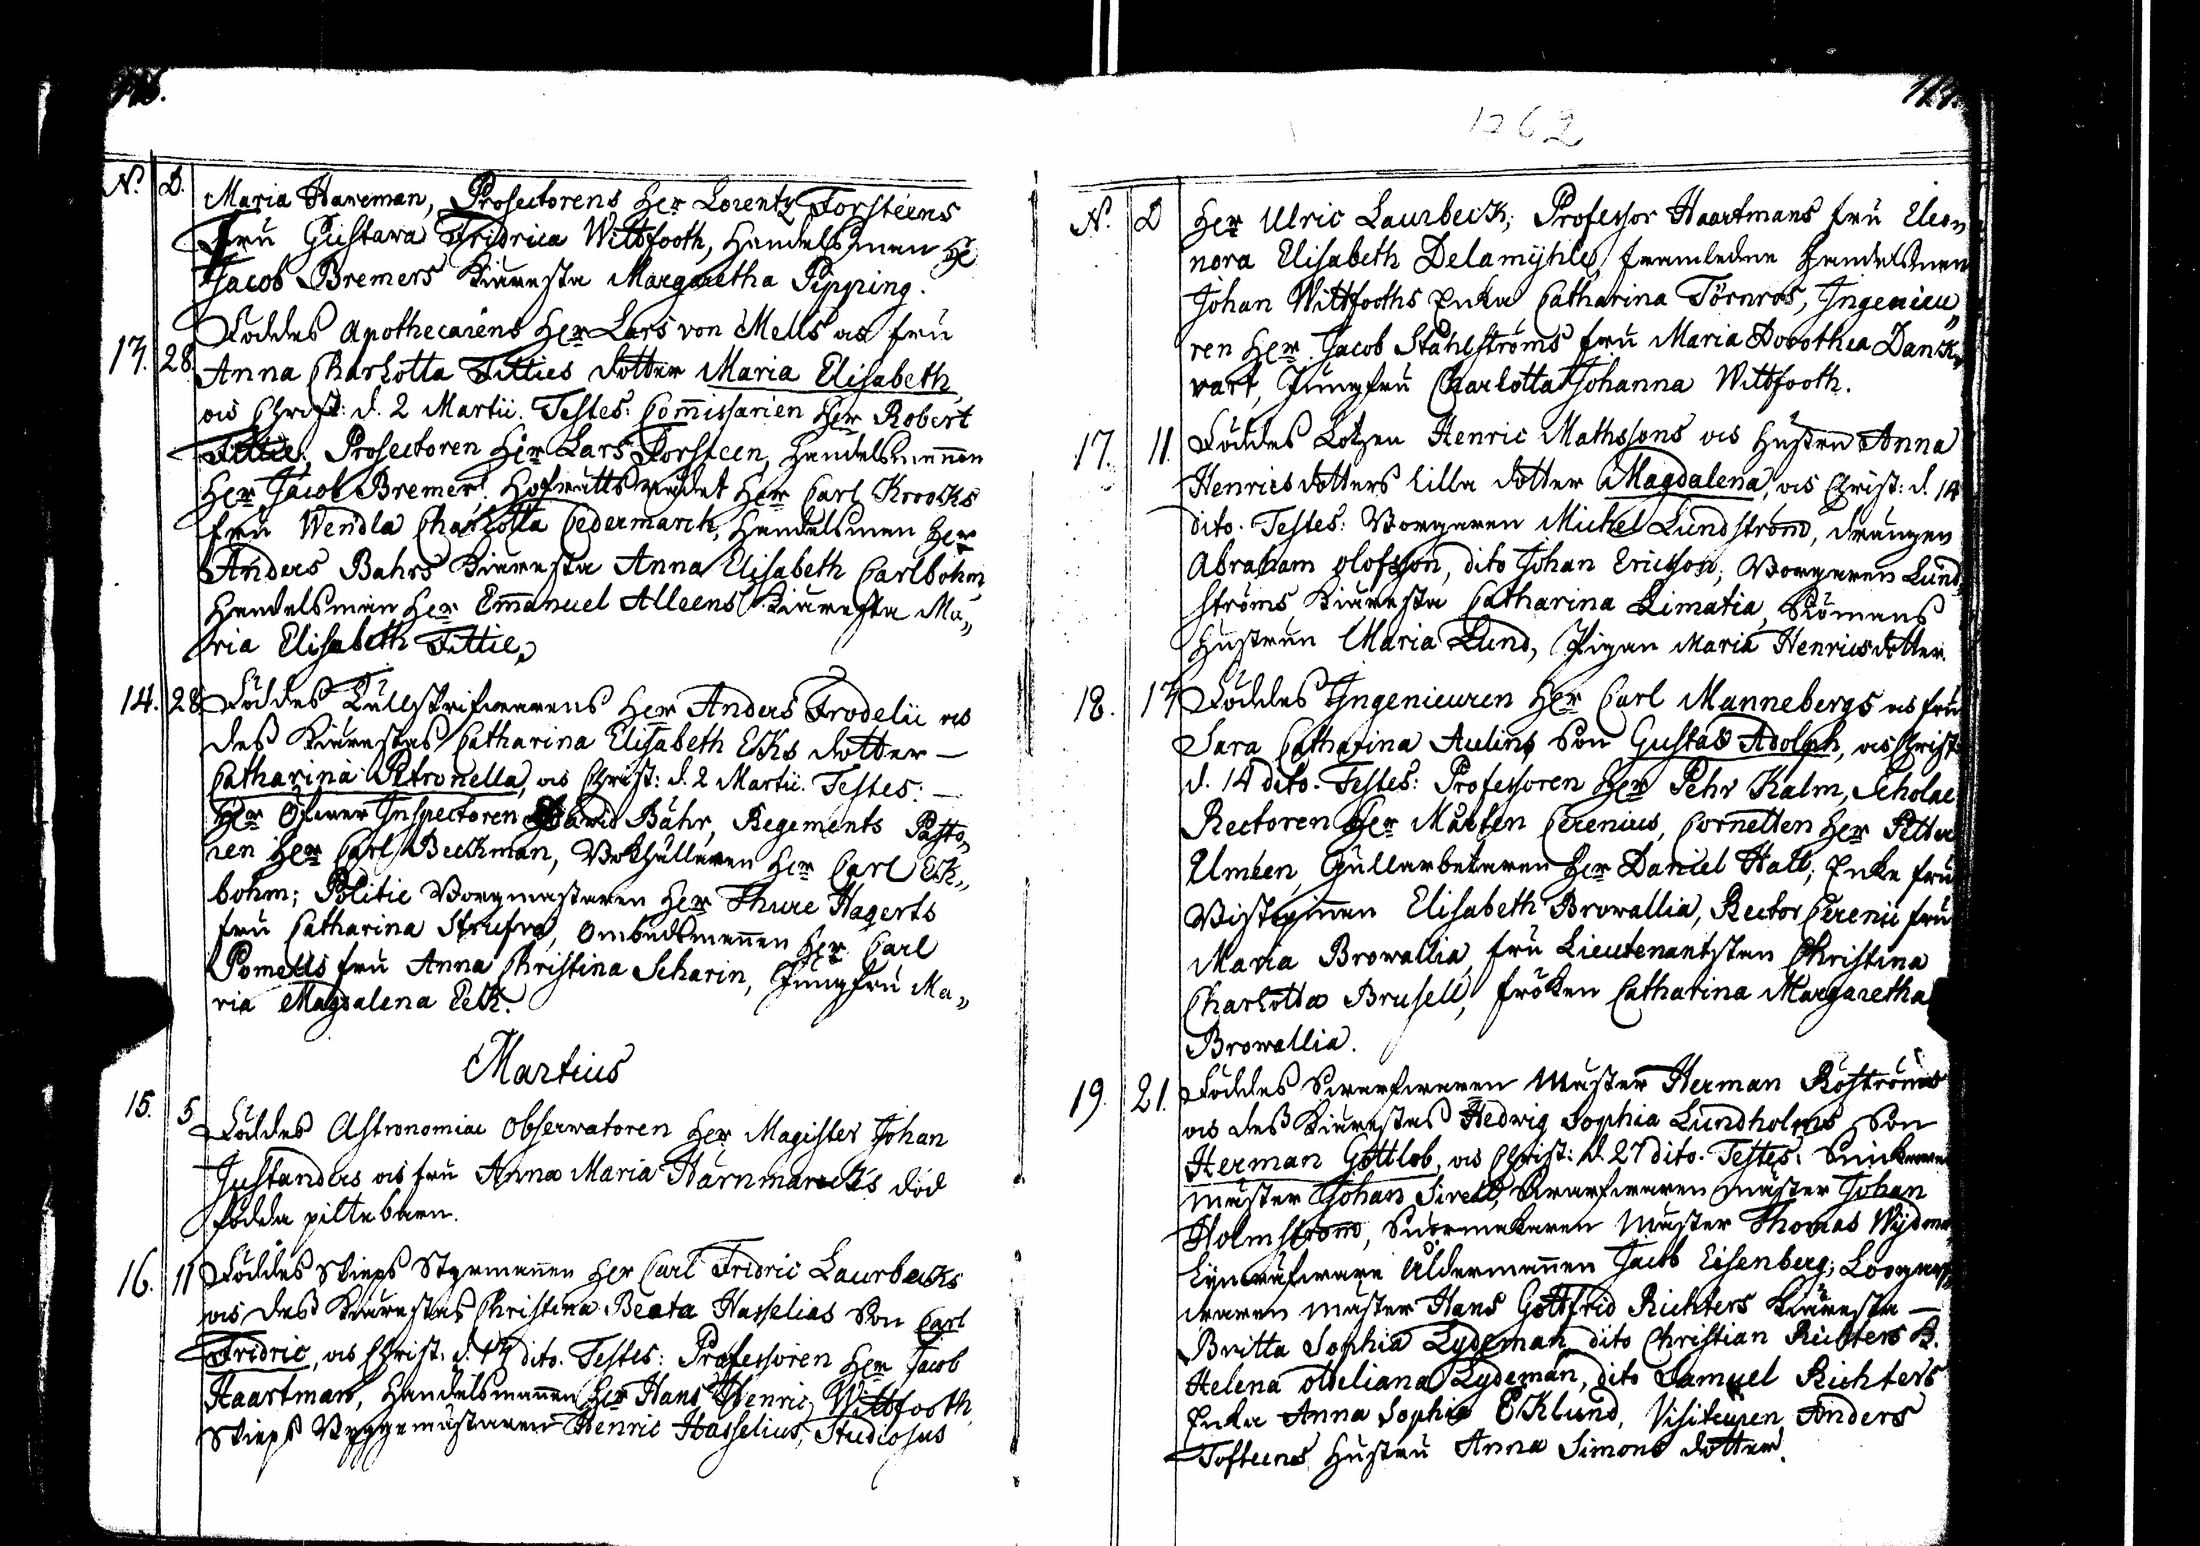 1762
N. D.
Maria Hareman, Prosectorens Her Lorentz Forsteens
Fru Gustava Fridrica Wittfooth, Handelsman H
Jacob Bremers Kieresta Margaretha Pipping.
13. 28. Föddes Apothecarens Her Lars von Mells os fru
Anna Charlotta Titties dotter Maria Elisabeth,
os Christ: d. 2 Martii. Testes: Com̄issarien Her Robert
Tittie, Prosectoren Her Lars Forsteen, Handelsmannen
Her Jacob Bremer. Hofrätts rådet Her Carl Kroocks
fru Wendla Charlotta Cedermarck, Handelsman Her
Anders Bahrs Kieresta Anna Elisabeth Carlbohm,
Handelsman Her Em̄anuel Alleens Kieresta Ma„
ria Elisabeth Tittie,
14. 28 Föddes Tullskrifwarens Her Anders Frodelii os
deß Kierestas Catharina Elisabeth Eks dotter —
Catharina Petronella, os Christ: d. 2 Martii. Testes: —
Her Öfwer Inspectoren David Bähr, Regements Pasto„
ren Her Carl Beckman, Bokhållaren Her Carl Ek„
bohm; Politie Borgmästaren Her Thure Hagerts
fru Catharina Strufva, Ombudsmannen Her Carl
Pomells fru Anna Christina Scharin, Jungfru Ma„
ria Magdalena Eek.
Martius
15. 5 Föddes Astronomiae Observatoren Her Magister Johan
Justanders os fru Anna Maria Härnmarcks död
födda piltebarn.
16. 11 Föddes Skieps Styrmannen Her Carl Fridric Laurbecks
os deß Kierestas Christina Beata Hasselias Son Carl
Fridric, os Christ: d. dito. Testes: Professoren Her Jacob
Haartman, Handelsmannen Her Hans Henric Wittfooth,
Skieps Byggemästaren Henric Hasselius, Studiosus
N. D
Her Ulric Laurbeck; Professor Haartmans fru Eleo„
nora Elisabeth Delamyhle, framledne Handelsman
Johan Wittfooths Enka Catharina Törnros, Ingenieu„
ren Her Jacob Stahlströms fru Maria Dorothea Danck„
vart, Jungfru Charlotta Johanna Wittfooth.
17. 11. Föddes Lotzen Henric Mathssons os Hustru Anna
Henrics dotters lilla dotter Magdalena, os Christ: d. 14
dito. Testes: Borgaren Michel Lundström, drängen
Abraham Olofsson, dito Johan Ericsson; Borgaren Lund„
ströms Kieresta Catharina Limatia, Siömans
Hustrun Maria Lund, Pigan Maria Henricsdotter.
18. 13 Föddes Ingenieuren Her Carl Mannebergs os fru
Sara Catharina Aulins Son Gustav Adolph, os Christ:
d. 14 dito. Testes: Professoren Her Pehr Kalm, Scholae
Rectoren Her Mårten Cerenius, Cornetten Her Petter
Uméen, Gullarbetaren Her Daniel Hall; Enke fru
Biskopinnan Elisabeth Browallia, Rector Cerenii fru
Maria Browallia, fru Lieutenantskan Christina
Charlotta Brusell, fröken Catharina Margaretha
Browallia.
19. 21. Föddes Swarfwaren Mäster Herman Roströms
os deß Kierestas Hedwig Sophia Lundholms Son
Herman Gottlob, os Christ: d. 27 dito. Testes: Snickaren
Mäster Johan Sirell, Swarfwaren Mäster Johan
Holmström, Snörmakaren Mäster Thomas Wydman,
Åldermannen Jacob Eisenberg; Logarf„
waren Mäster Hans Gottfrid Richters Kieresta —
Britta Sophia Lydeman, dito Christian Richters K.
Helena Lydeman, dito Samuel Richters
Enka Anna Sophia Eklund, Anders
Tofteens Hustru Anna Simons dotter.